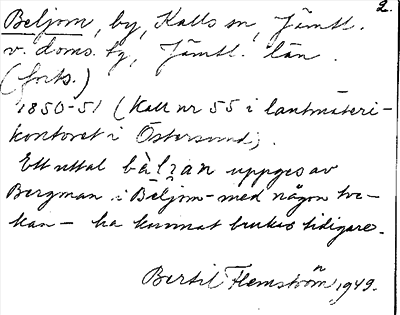 2.
Beljom, by, Kalls sn, Jämtl.
v. doms. hg, Jämtl. län.
(forts.)
1850-51 (Kall nr 55 i lantmäteri-
kontoret i Östersund;
Ett uttal bàl̥ʒan uppges av
Bergman i Beljom - med någon tve-
kan - ha kunnat brukas tidigare.
Bertil Flemström 1949.